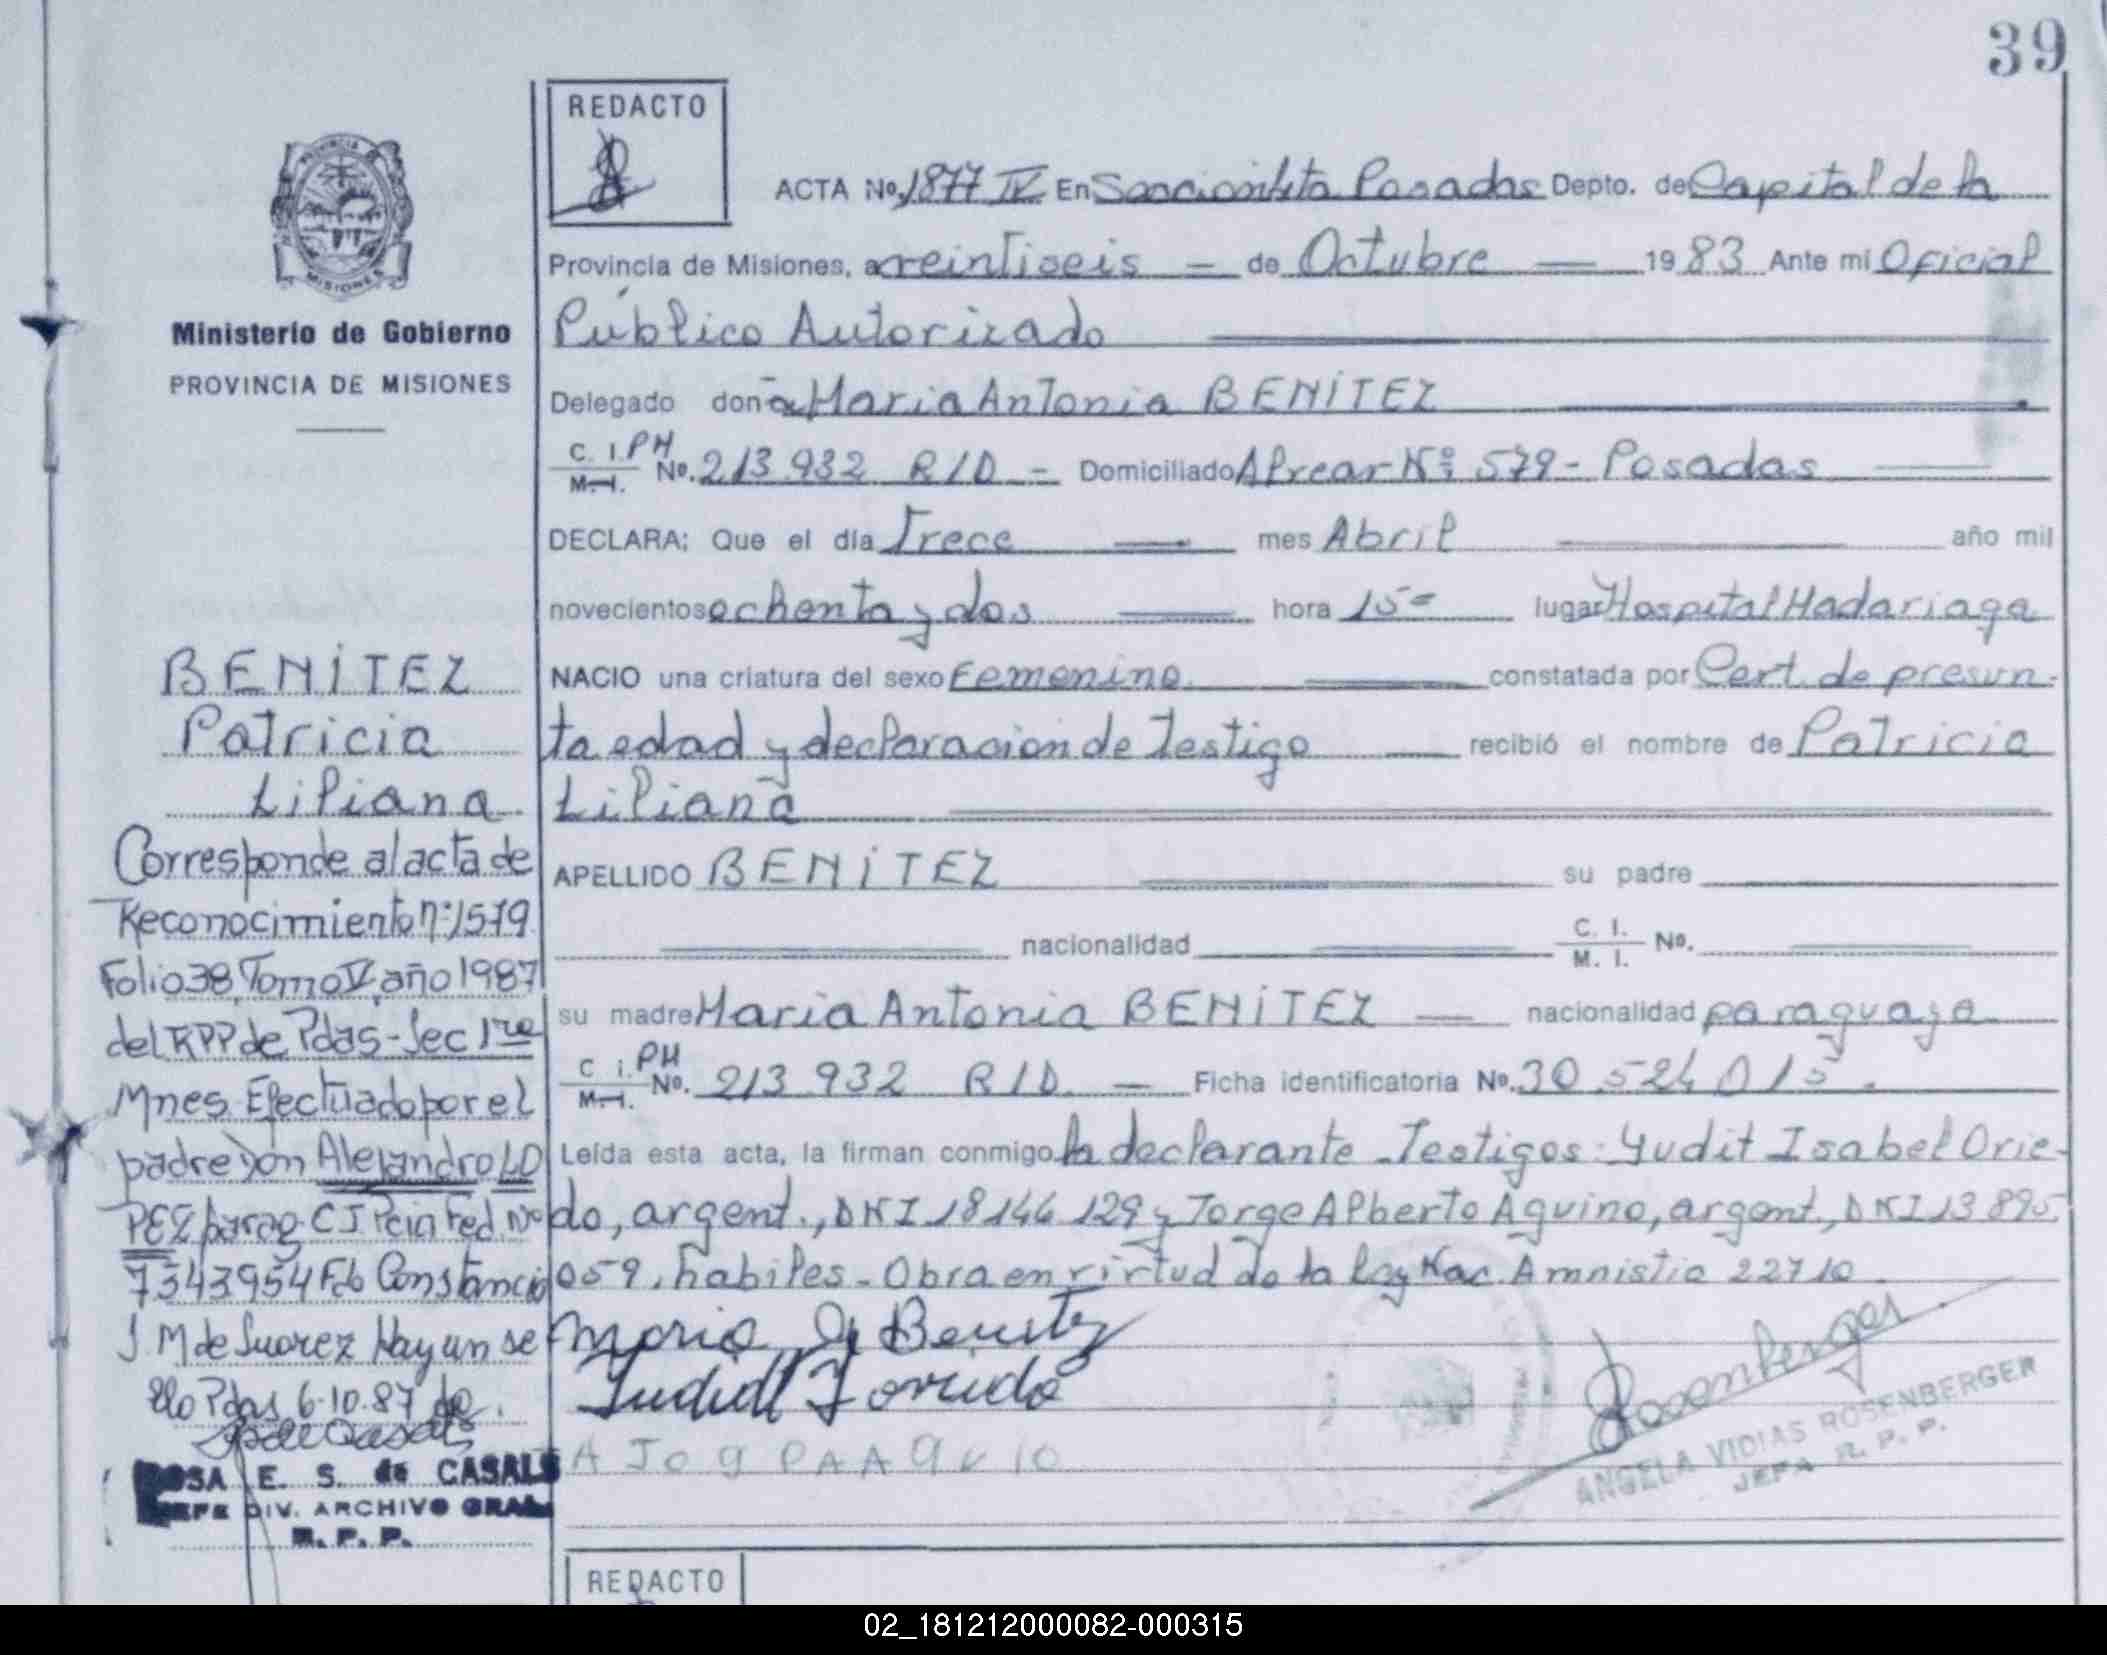 39
REDACTO
ACTA No. 1877 IV En Sección 1ra Posadas Depto. de Capital de la
Provincia de Misiones, a veintiseis — de Octubre — 1983 Ante mi Oficial
Público Autorizado
Delegado doña Maria Antonia BENITEZ
C. I. PH
M. I. No. 213.932 R/D — Domiciliado Alvear Nº 579 - Posadas
DECLARA: Que el día Trece — mes Abril año mil
novecientos ochenta y dos hora 15 = lugar Hospital Madariaga
NACIO una criatura del sexo Femenino constatada por Cert. de presun-
ta edad y declaracion de Testigo recibió el nombre de Patricia
Liliana
APELLIDO BENITEZ su padre
nacionalidad C. I.
M. I. No.
su madre Maria Antonia BENITEZ — nacionalidad paraguaya
C. I. PH
M. I. No. 213.932 R/D — Ficha identificatoria No. 30.524.015.
Leída esta acta, la firman conmigo la declarante - Testigos: Yudit Isabel Orie-
do, argent., DNI 18144129 y Jorge Alberto Aquino, argent., DNI 13.895.
059, habiles - Obra en virtud de la ley Nac. Amnistia 22710
Maria A Benitez
Rosenberger
ANGELA VIDIAS ROSENBERGER
JEFA R. P. P.
REDACTO
PROVINCIA DE
MISIONES
Ministerio de Gobierno
PROVINCIA DE MISIONES
BENITEZ
Patricia
Liliana
Corresponde al acta de
Reconocimiento nº 1579
Folio 38, Tomo V, año 1987
del RPP de Pdas - Sec 1ra
Mnes. Efectuado por el
padre Don Alejandro LO
PEZ parag. C I Pcia Fed. Nº
7343954 Fdo Constancio
J. M de Suarez Hay un se
llo Pdas 6-10-87
ROSA E. S. de CASALS
JEFE DIV. ARCHIVO GRAL.
R. P. P.
02_181212000082-000315